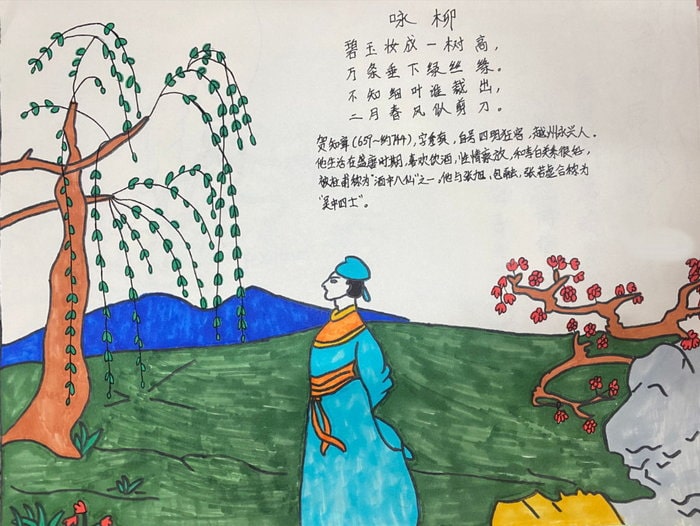 咏柳
碧玉妆成一树高，
万条垂下绿丝绦。
不知细叶谁裁出，
二月春风似剪刀。
贺知章（659～约744），字季真，自号四明狂客，越州永兴人。
他生活在盛唐时期，喜欢饮酒，性情豪放，和李白关系很好，
被杜甫称为“酒中八仙”之一，他与张旭，包融，张若虚合称为
“吴中四士”。